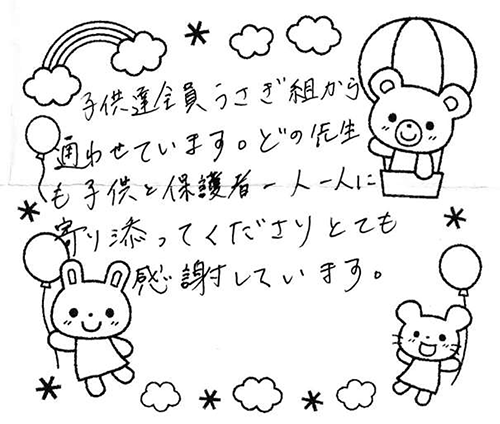 子供達全員うさぎ組から
通わせています。どの先生
も子供と保護者一人一人に
寄り添ってくださりとても
感謝しています。